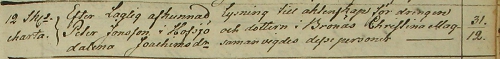 12 Sk: Efter laglig afkunnad lysning til äktenskaps för drängen
charta. Peter Jonsson i Hossjö och dottern i Bronäs Christina Mag- 31.
dalena Joachimsdr samanvigdes dessa personer 12.